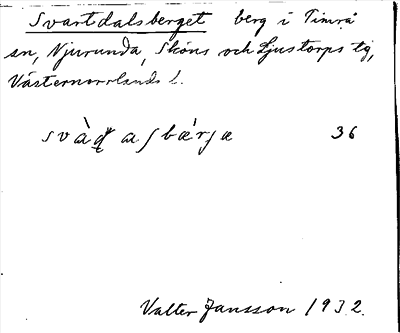 Svartdalsberget berg i Timrå
sn, Njurunda, Sköns och Ljustorps tg,
Västernorrlands l.
36
Valter Jansson 1932.